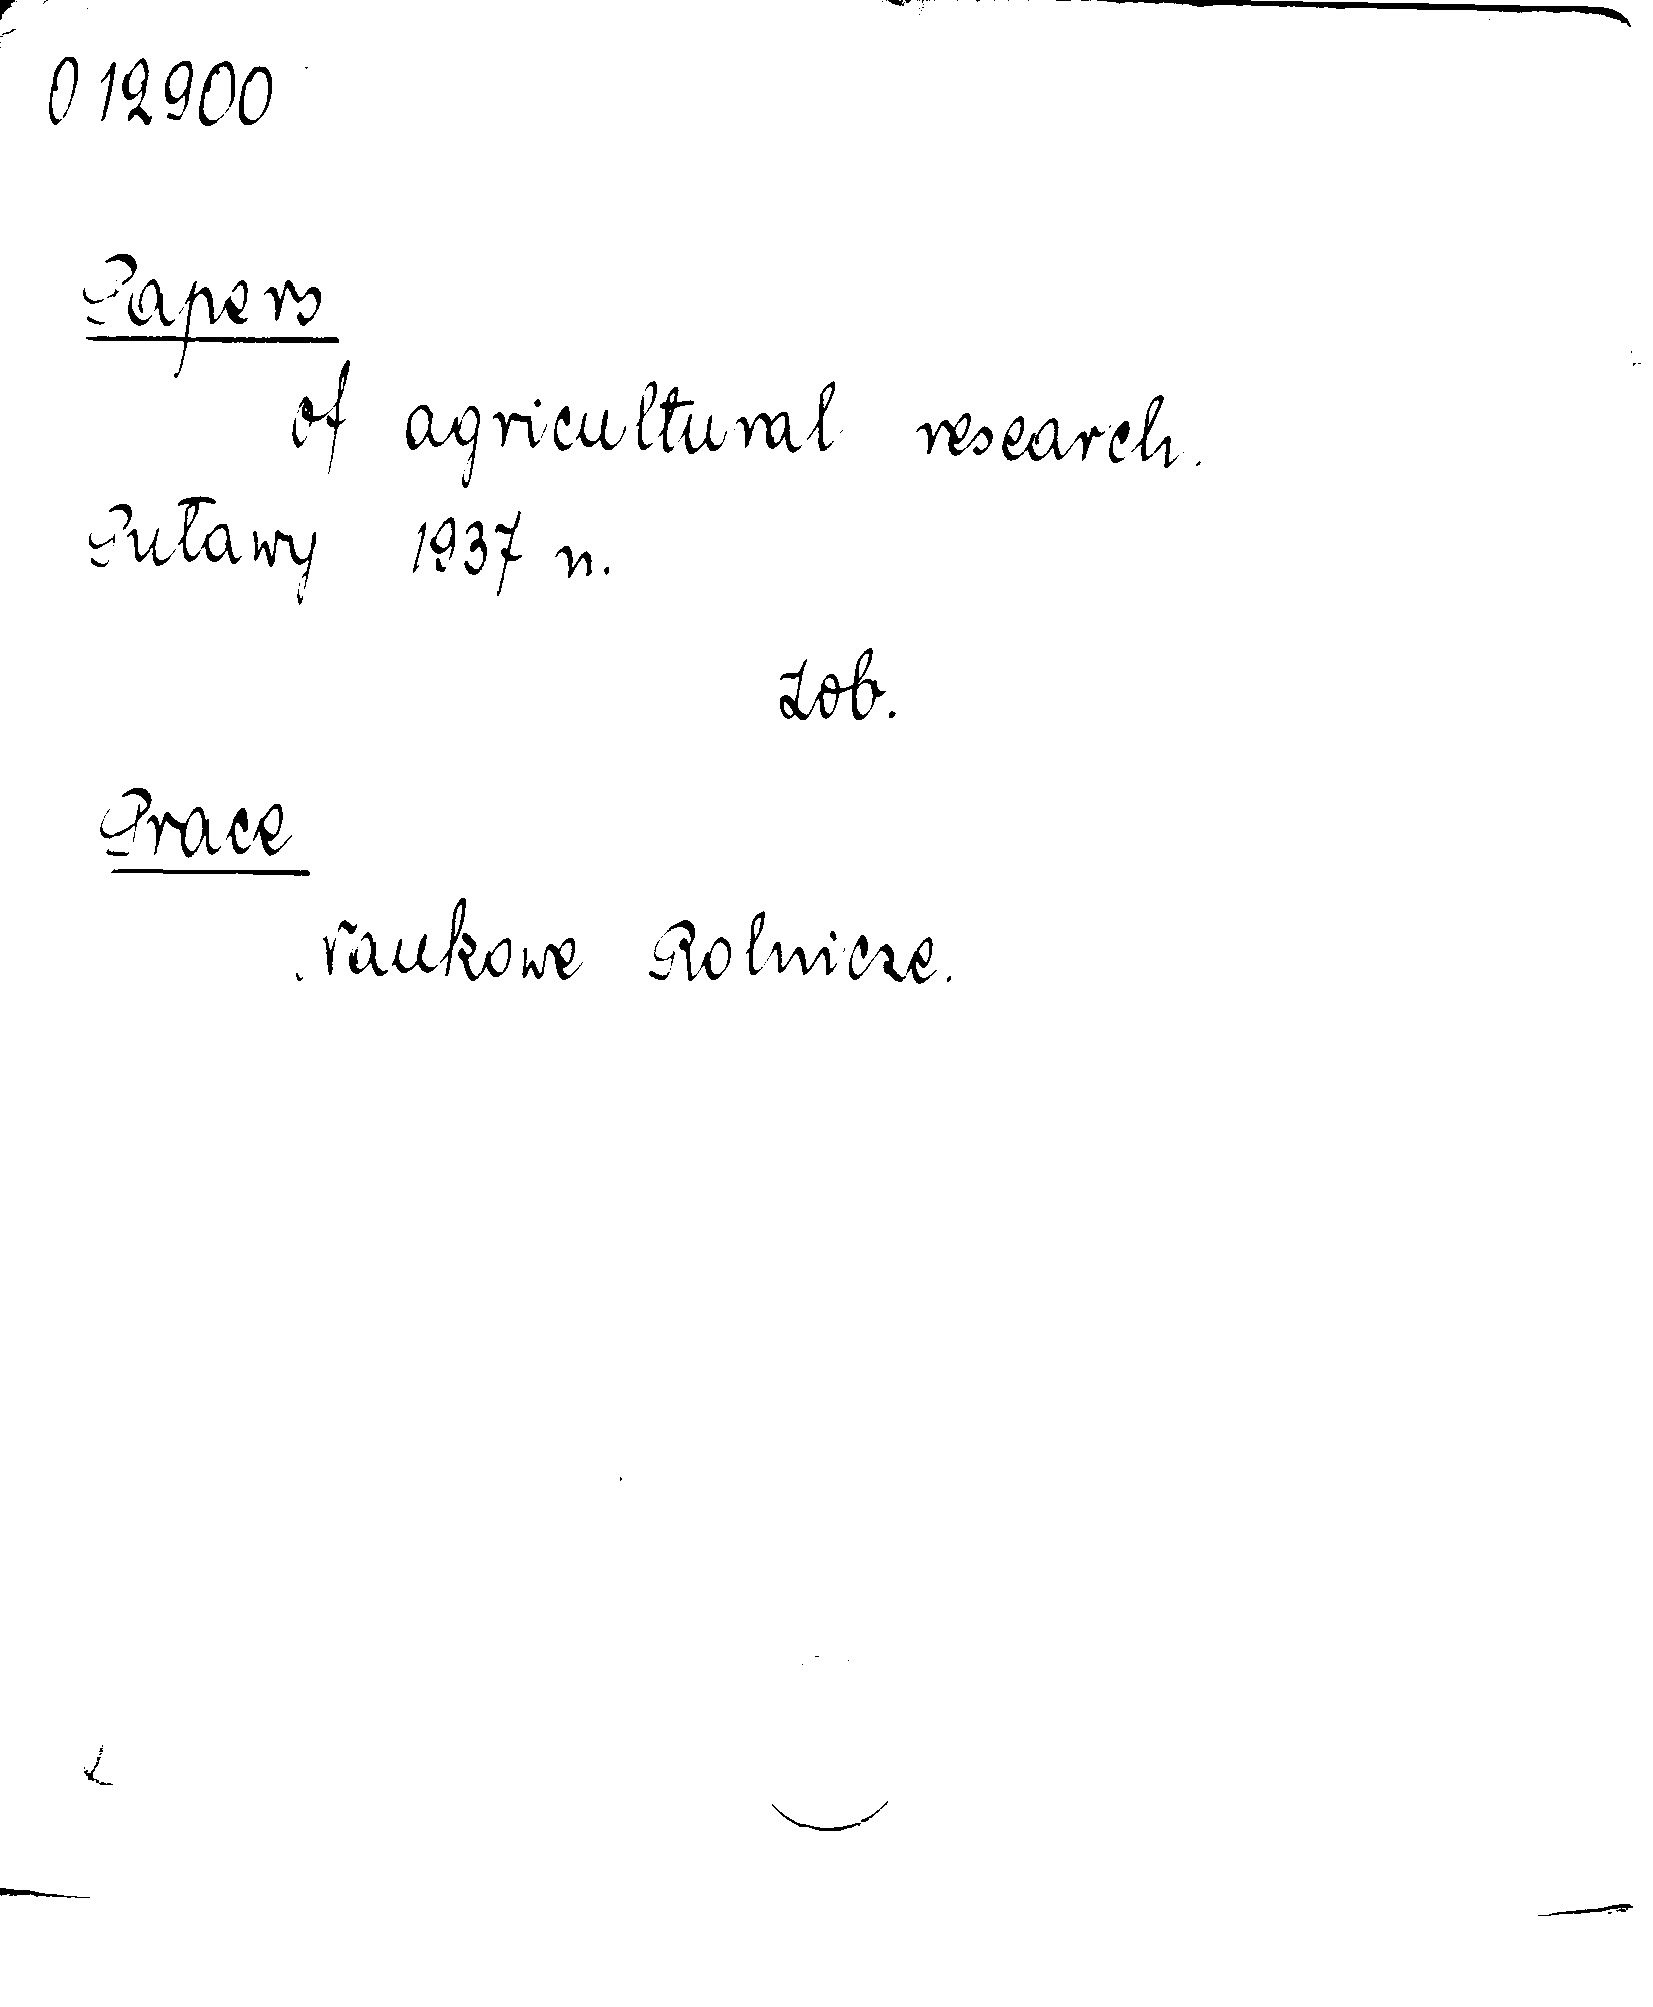 012900
Papers
of agricultural research.
Puławy 1937 n.
Zob.
Prace
Naukowe Rolnicze.